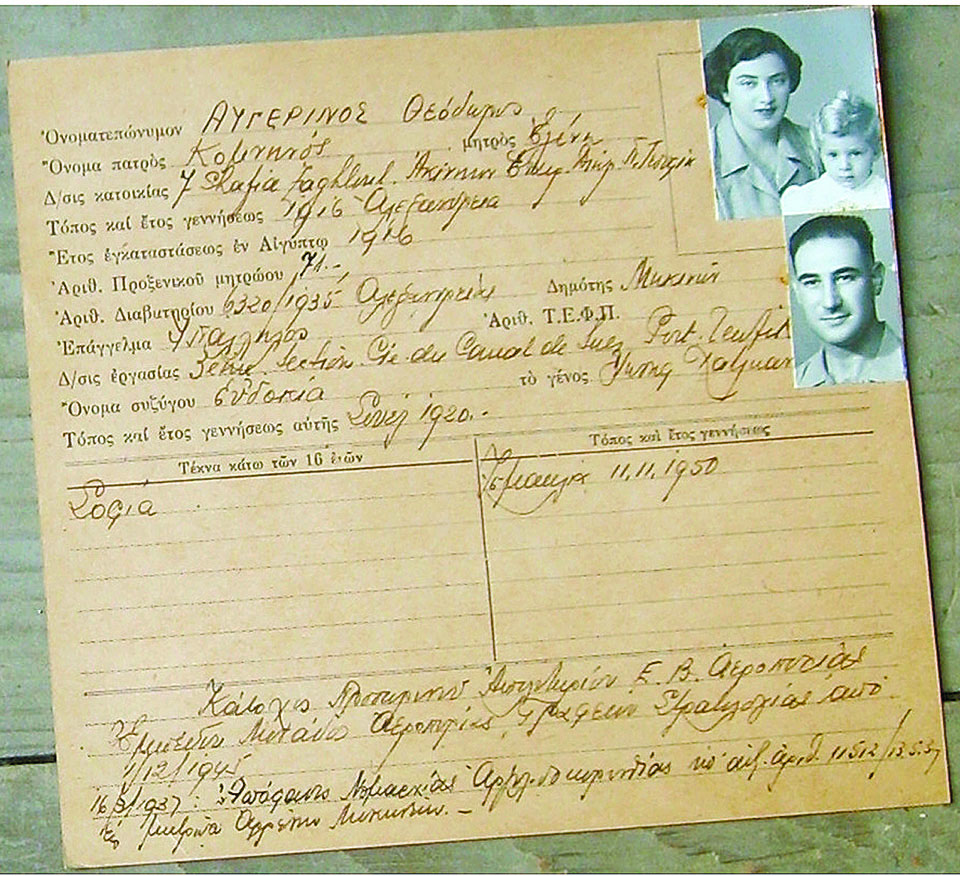 Ὀνοματεπώνυμον ΑΥΓΕΡΙΝΟΣ Θεόδωρος
Ὄνομα πατρὸς Κομνηνός μητρὸς Ἑλένη
Δ/σις κατοικίας 7 Shafia Zaghloul.
Τόπος καί ἔτος γεννήσεως 1916 Ἀλεξάνδρεια
Ἔτος ἐγκαταστάσεως ἐν Αἰγύπτῳ 1916
Ἀριθ. Προξενικοῦ μητρώου 71.-
Ἀριθ. Διαβατηρίου 6320/1935 Ἀλεξανδρείας Δημότης
Ἐπάγγελμα Ὑπάλληλος Ἀριθ. Τ.Ε.Φ.Π.
Δ/σις ἐργασίας 3ème Section Cie du Canal de Suez Port-Teufik
Ὄνομα συζύγου Εὐδοκία τὸ γένος
Τόπος καί ἔτος γεννήσεως αὐτῆς Σουέζ 1920.-
Τέκνα κάτω τῶν 16 ἐτῶν Τόπος καί ἔτος γεννήσεως
Σοφία Ἰσμαηλία 11.11.1950
Κάτοχος Προσωρινοῦ Ἀπολυτηρίου Ε. Β. Ἀεροπορίας
Ἀεροπορίας Γραφείου Στρατολογίας ἀπὸ
1/12/1945
16/3/1937: Νομαρχίας Ἀργολιδοκορινθίας ὑπ' ἀριθ. 11512/13.5.37